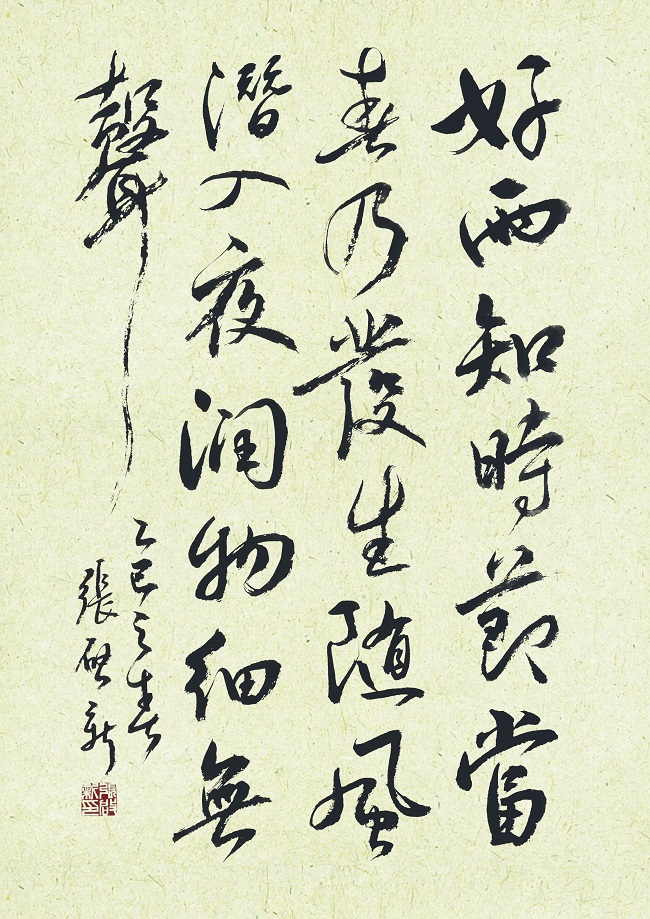 好雨知時節當
春乃發生随風
潛入夜潤物細無
聲
乙巳之春
張啟新
張啟新印